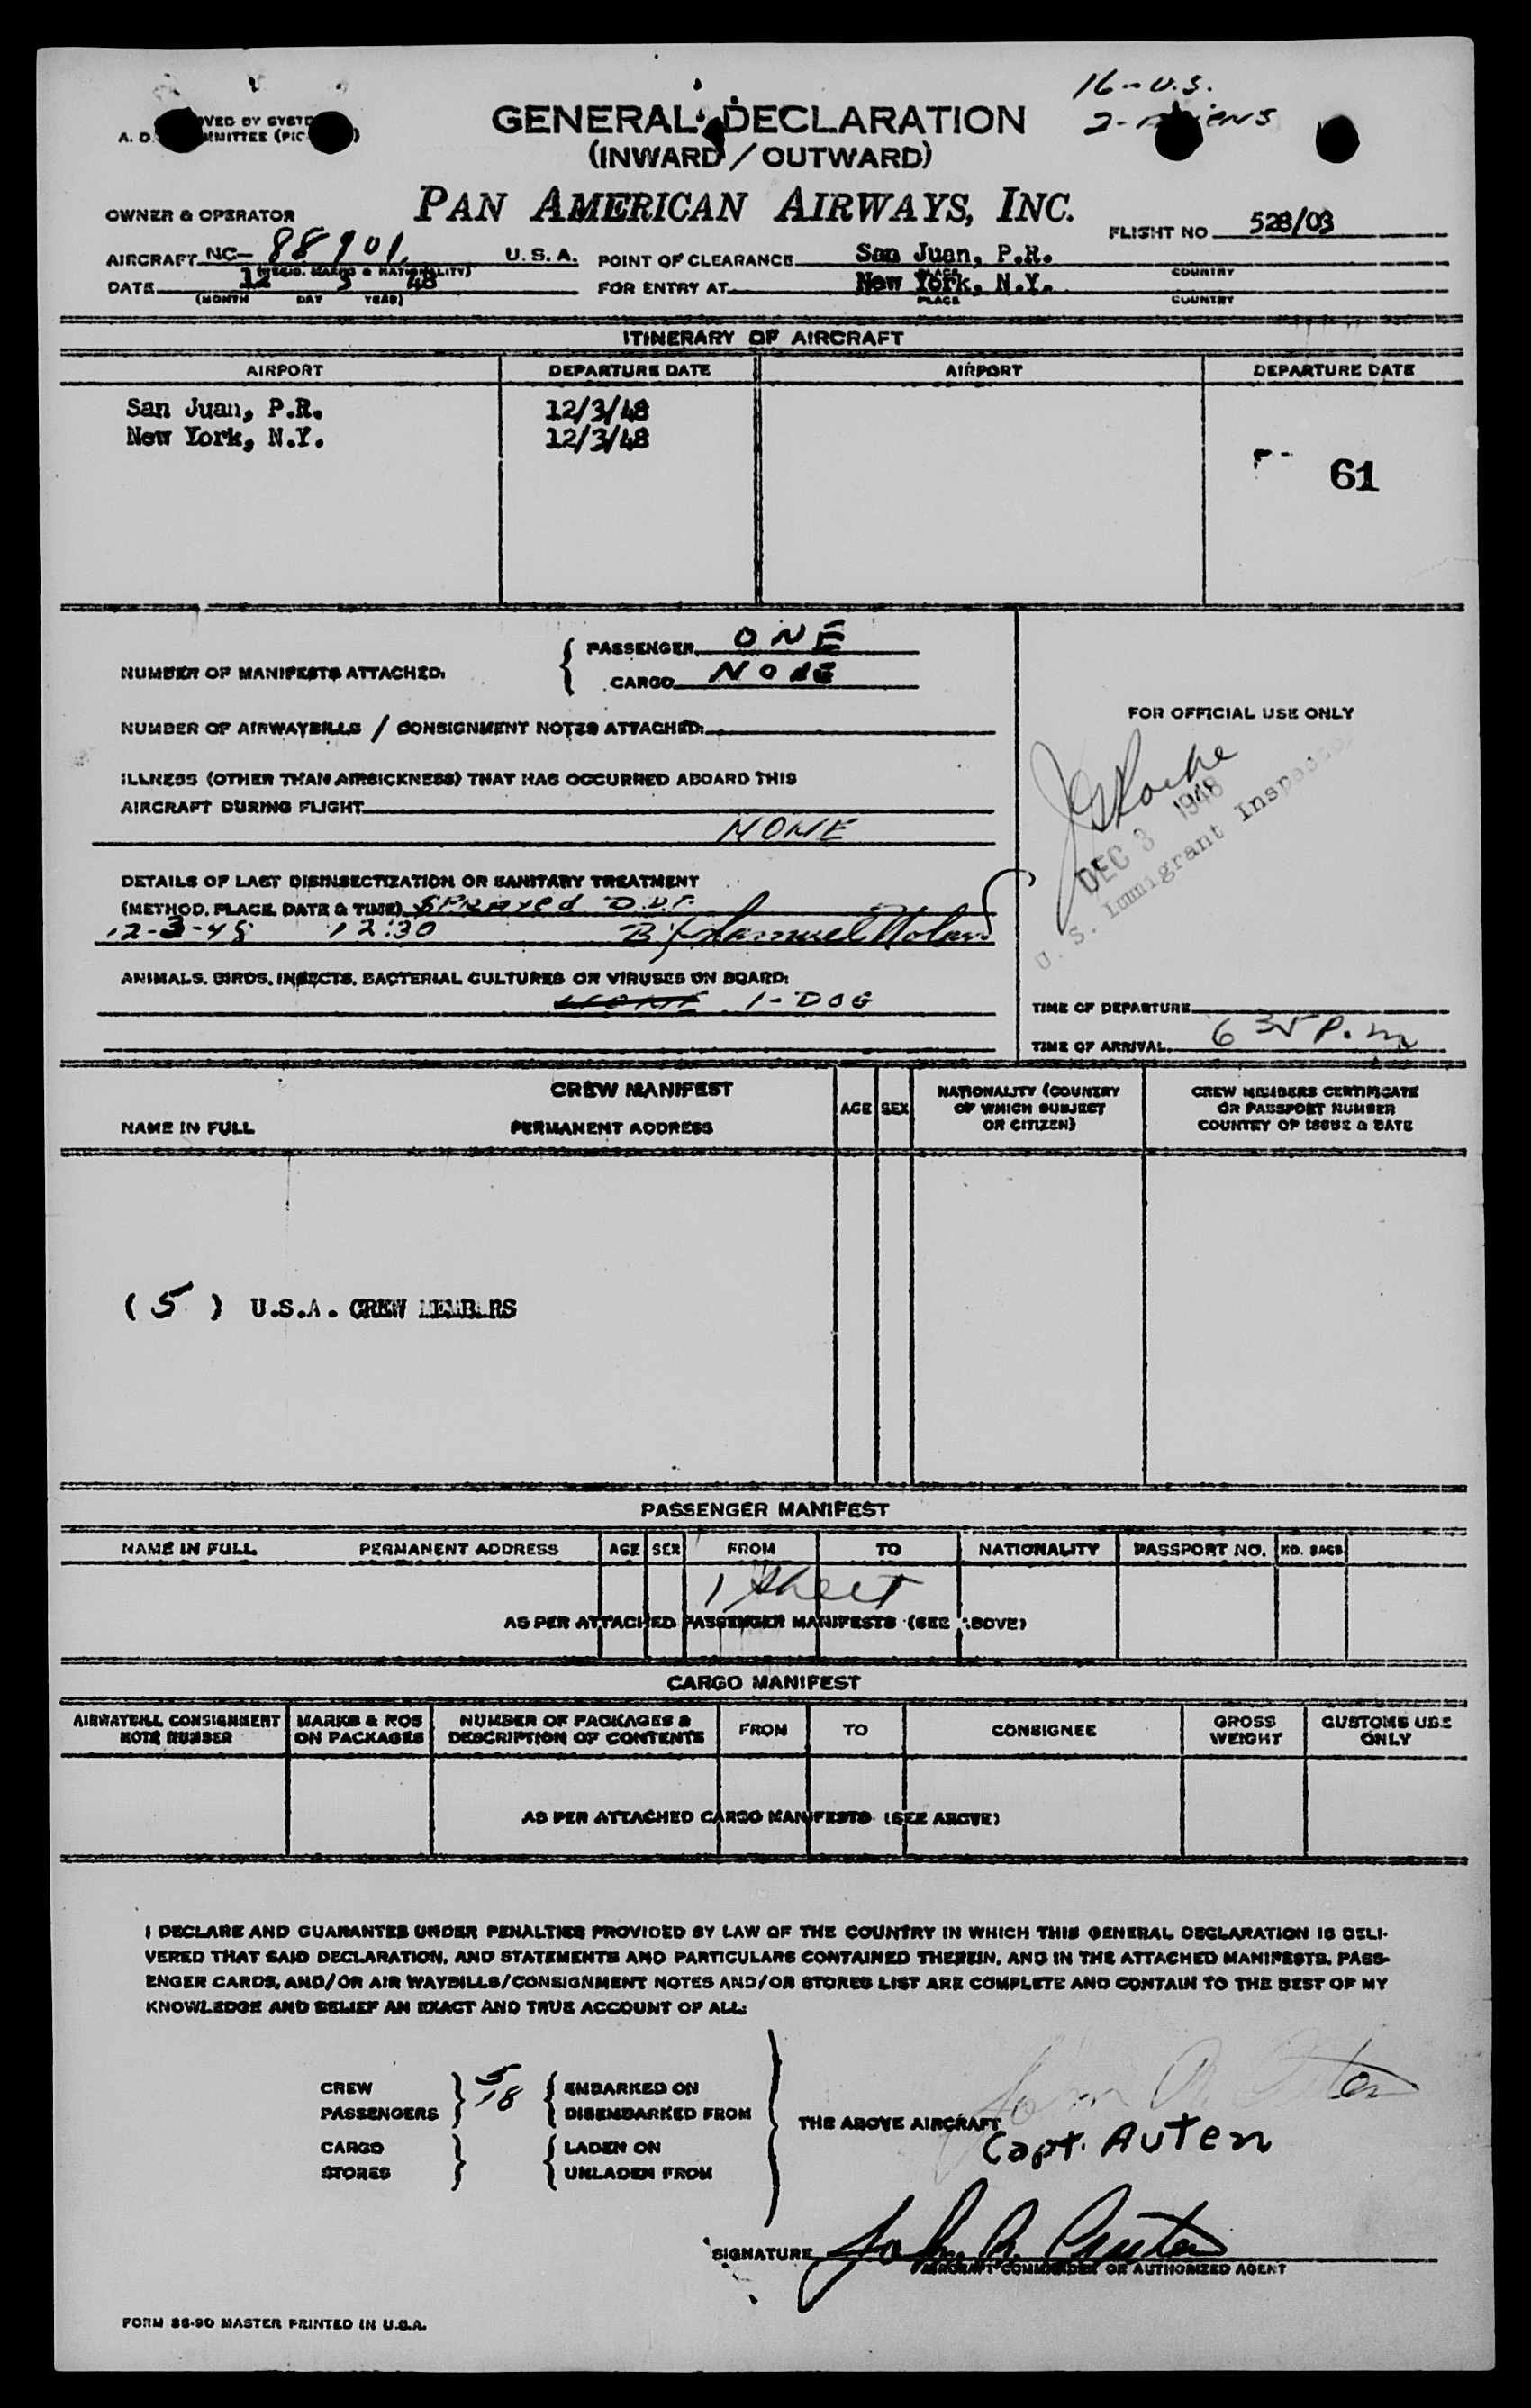 16-U.S.
2-
A. D.
GENERAL DECLARATION
(INWARD / OUTWARD)
PAN AMERICAN AIRWAYS, INC.
OWNER & OPERATOR
FLIGHT NO 528/03
AIRCRAFT NC- 88901 U.S.A. POINT OF CLEARANCE San Juan, P.R.
(REGIS. MARKS & NATIONALITY) PLACE COUNTRY
DATE 12 3 48 FOR ENTRY AT New York, N.Y.
(MONTH DAY YEAR) PLACE COUNTRY
ITINERARY OF AIRCRAFT
AIRPORT DEPARTURE DATE AIRPORT DEPARTURE DATE
San Juan, P.R. 12/3/48
New York, N.Y. 12/3/48
61
NUMBER OF MANIFESTS ATTACHED. { PASSENGER ONE
CARGO NONE
NUMBER OF AIRWAYBILLS / CONSIGNMENT NOTES ATTACHED:
FOR OFFICIAL USE ONLY
ILLNESS (OTHER THAN AIRSICKNESS) THAT HAS OCCURRED ABOARD THIS
AIRCRAFT DURING FLIGHT
NONE
DEC 3 1948
U. S. Immigrant Inspector
DETAILS OF LAST DISINSECTIZATION OR SANITARY TREATMENT
(METHOD, PLACE, DATE & TIME) SPRAYED D.D.T.
12-3-48 12:30 By Samuel Nolan
ANIMALS, BIRDS, INSECTS, BACTERIAL CULTURES OR VIRUSES ON BOARD:
NONE 1-DOG
TIME OF DEPARTURE
TIME OF ARRIVAL 6 35 P.m
CREW MANIFEST
NAME IN FULL PERMANENT ADDRESS AGE SEX NATIONALITY (COUNTRY OF WHICH SUBJECT OR CITIZEN) CREW MEMBERS CERTIFICATE OR PASSPORT NUMBER COUNTRY OF ISSUE & DATE
( 5 ) U.S.A. CREW MEMBERS
PASSENGER MANIFEST
NAME IN FULL PERMANENT ADDRESS AGE SEX FROM TO NATIONALITY PASSPORT NO. NO. BAGS
1 sheet
AS PER ATTACHED PASSENGER MANIFESTS (SEE ABOVE)
CARGO MANIFEST
AIRWAYBILL CONSIGNMENT NOTE NUMBER MARKS & NOS ON PACKAGES NUMBER OF PACKAGES & DESCRIPTION OF CONTENTS FROM TO CONSIGNEE GROSS WEIGHT CUSTOMS USE ONLY
AS PER ATTACHED CARGO MANIFESTS (SEE ABOVE)
I DECLARE AND GUARANTEE UNDER PENALTIES PROVIDED BY LAW OF THE COUNTRY IN WHICH THIS GENERAL DECLARATION IS DELI-
VERED THAT SAID DECLARATION, AND STATEMENTS AND PARTICULARS CONTAINED THEREIN, AND IN THE ATTACHED MANIFESTS, PASS-
ENGER CARDS, AND/OR AIR WAYBILLS/CONSIGNMENT NOTES AND/OR STORES LIST ARE COMPLETE AND CONTAIN TO THE BEST OF MY
KNOWLEDGE AND BELIEF AN EXACT AND TRUE ACCOUNT OF ALL:
CREW 5 EMBARKED ON
PASSENGERS 18 DISEMBARKED FROM
THE ABOVE AIRCRAFT
Capt. Auten
CARGO LADEN ON
STORES UNLADEN FROM
SIGNATURE John A. Auten
AIRCRAFT COMMANDER OR AUTHORIZED AGENT
FORM 86-90 MASTER PRINTED IN U.S.A.